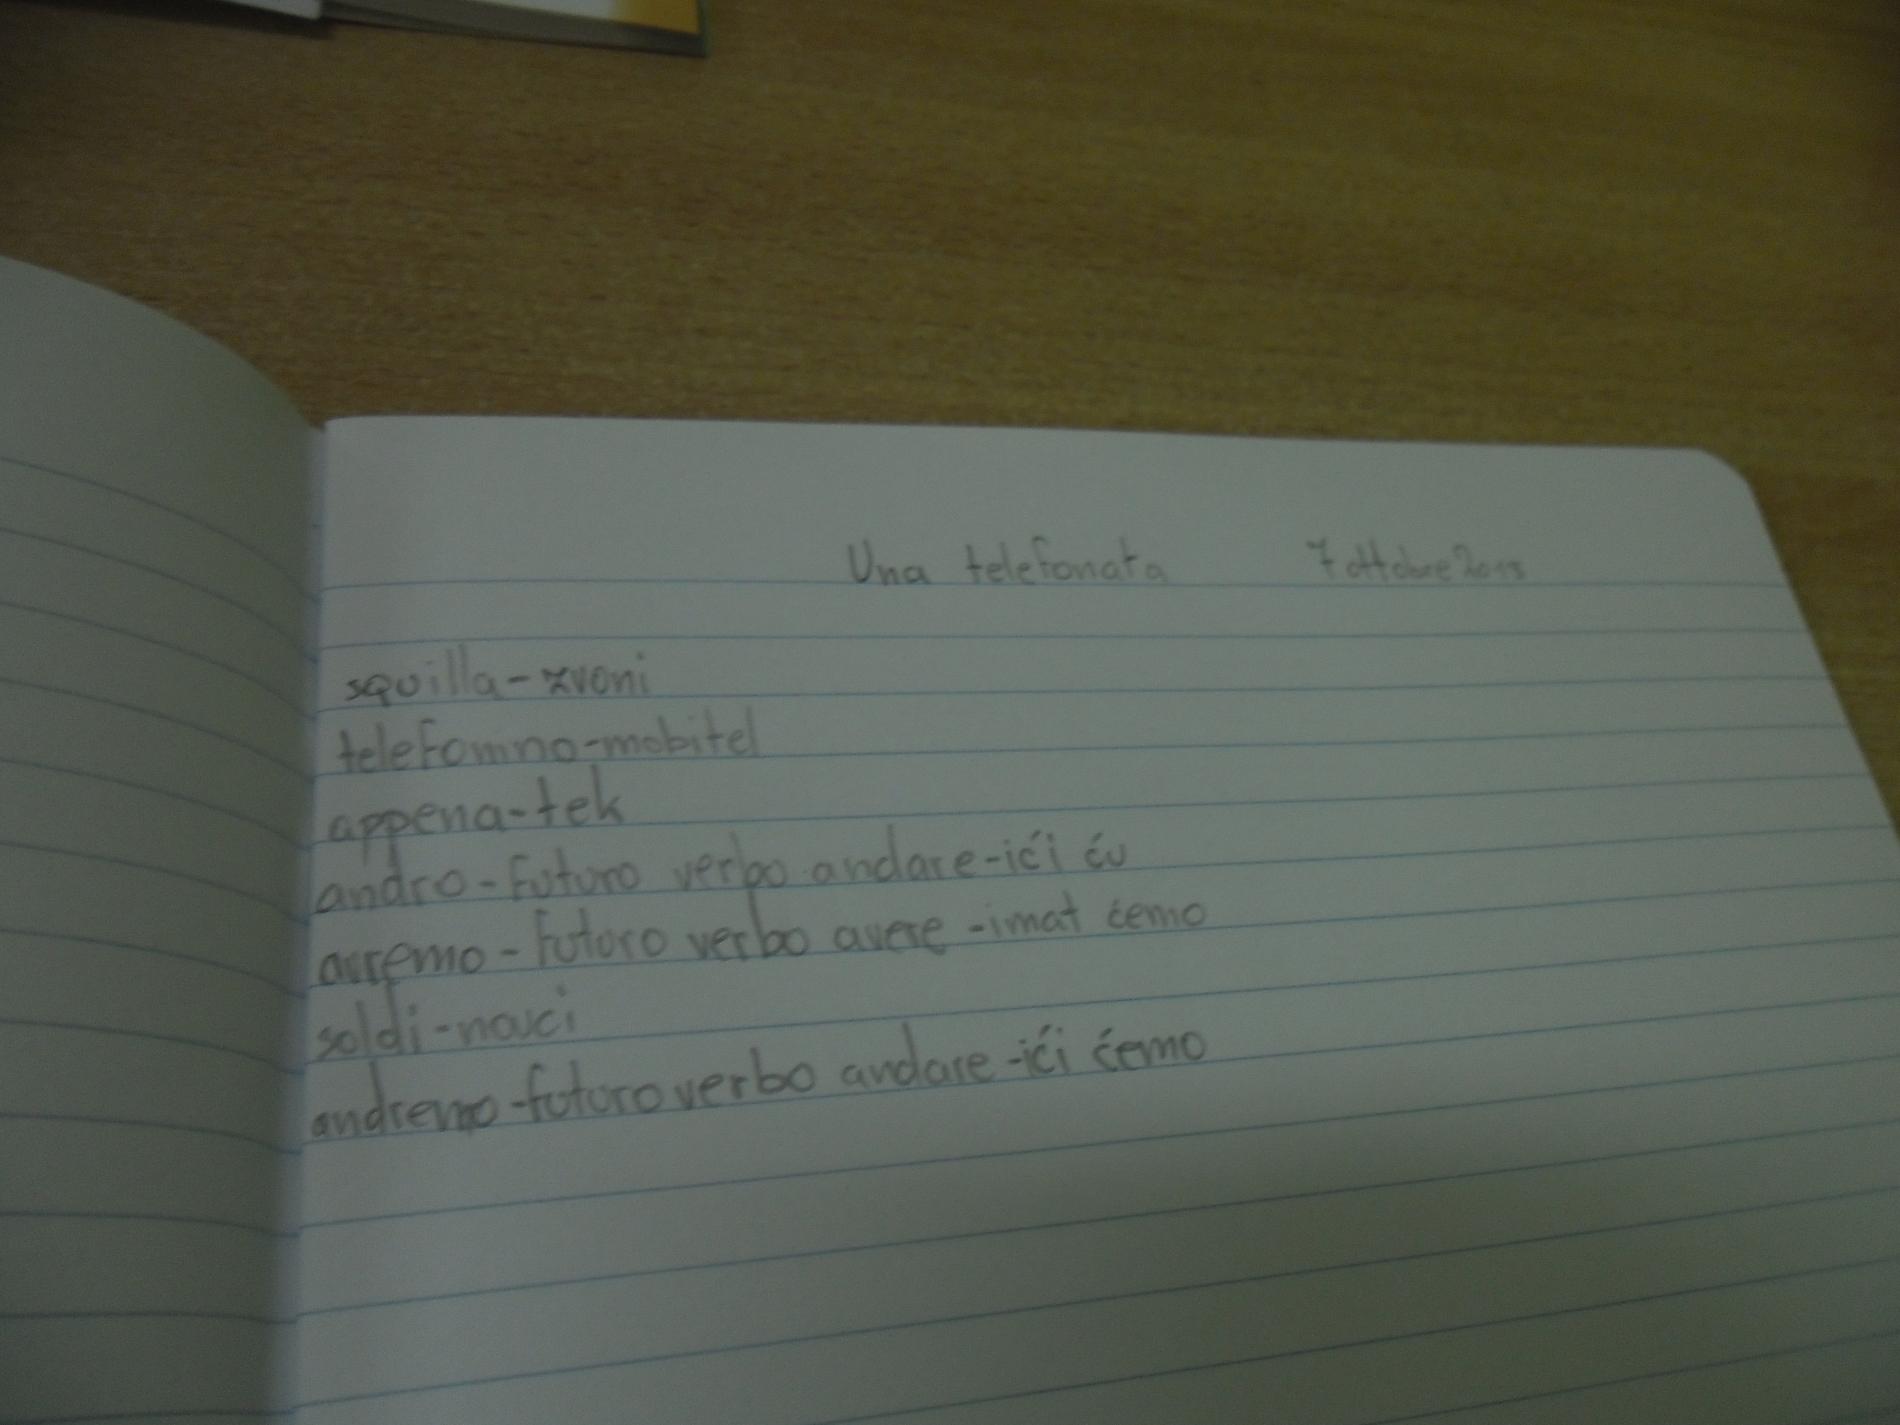 Una telefonata 7 ottobre 2015
squilla-zvoni
telefomno-mobitel
appena-tek
andro-futuro verbo andare-ići ću
avremo-futuro verbo avere-imat ćemo
soldi-novci
andremo-futuro verbo andare-ići ćemo